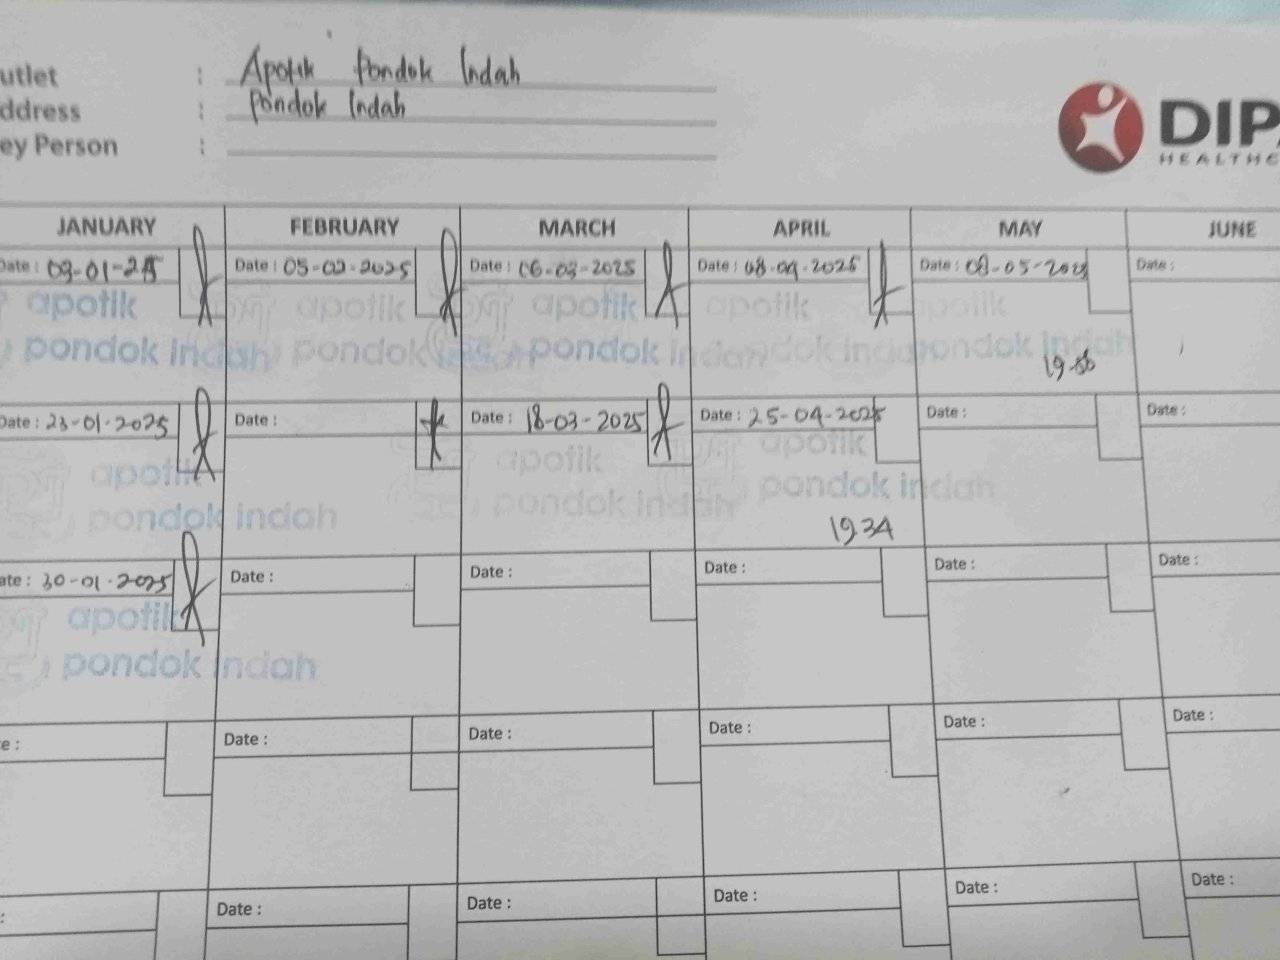 utlet : Apotik Pondok Indah
ddress : Pondok Indah
ey Person :
DIPA
HEALTHC
JANUARY FEBRUARY MARCH APRIL MAY JUNE
Date : 03-01-25 Date : 05-02-2025 Date : 06-03-2025 Date : 08-04-2025 Date : 08-05-2025 Date :
apotik apotik apotik apotik apotik
pondok indah pondok indah pondok indah pondok indah pondok indah
19.56
Date : 23-01-2025 Date : Date : 18-03-2025 Date : 25-04-2025 Date : Date :
apotik apotik apotik
pondok indah pondok indah pondok indah
19.34
ate : 30-01-2025 Date : Date : Date : Date : Date :
apotik
pondok indah
e : Date : Date : Date : Date : Date :
: Date : Date : Date : Date : Date :